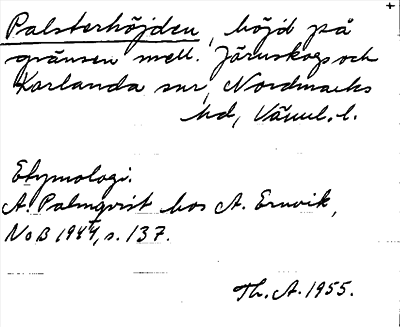 Palsterhöjden, höjd på
gränsen mell. Järnskogs och
Karlanda snr, Nordmarks
hd, Värml. l.
Etymologi.
A. Palmqvist hos A. Ernvik,
NoB 1944, s. 137.
Th. A. 1955.